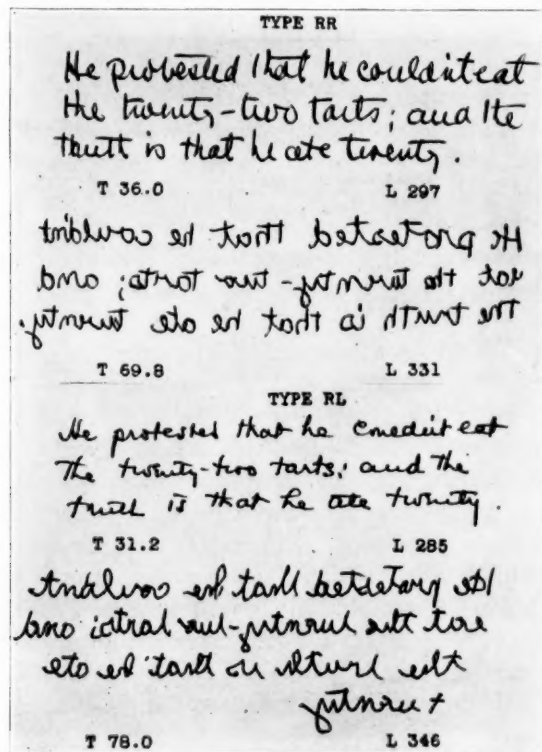 TYPE RR
He protested that he couldn't eat
the twenty-two tarts; and the
truth is that he ate twenty.
T 36.0 L 297
He protested that he couldn't
eat the twenty-two tarts; and
the truth is that he ate twenty.
T 69.8 L 331
TYPE RL
He protested that he couldn't eat
The twenty-two tarts; and the
truth is that he ate twenty.
T 31.2 L 285
He protested that he couldn't
eat the twenty-two tarts; and
the truth is that he ate
twenty
T 78.0 L 346